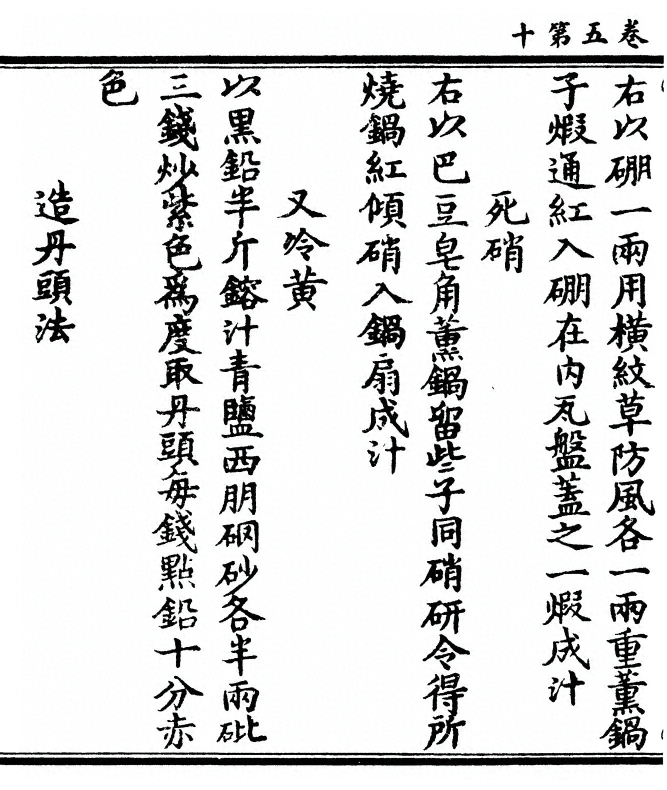 卷五第十
右以硼一兩用橫紋草防風各一兩重薰鍋
子煆通紅入硼在内瓦盤蓋之一煆成汁
死硝
右以巴豆皂角薰鍋留些子同硝研令得所
燒鍋紅傾硝入鍋扇成汁
又冷黄
以黒鉛半斤鎔汁青鹽西朋硇砂各半兩砒
三錢炒紫色爲度取丹頭每錢點鉛十分赤
色
造丹頭法